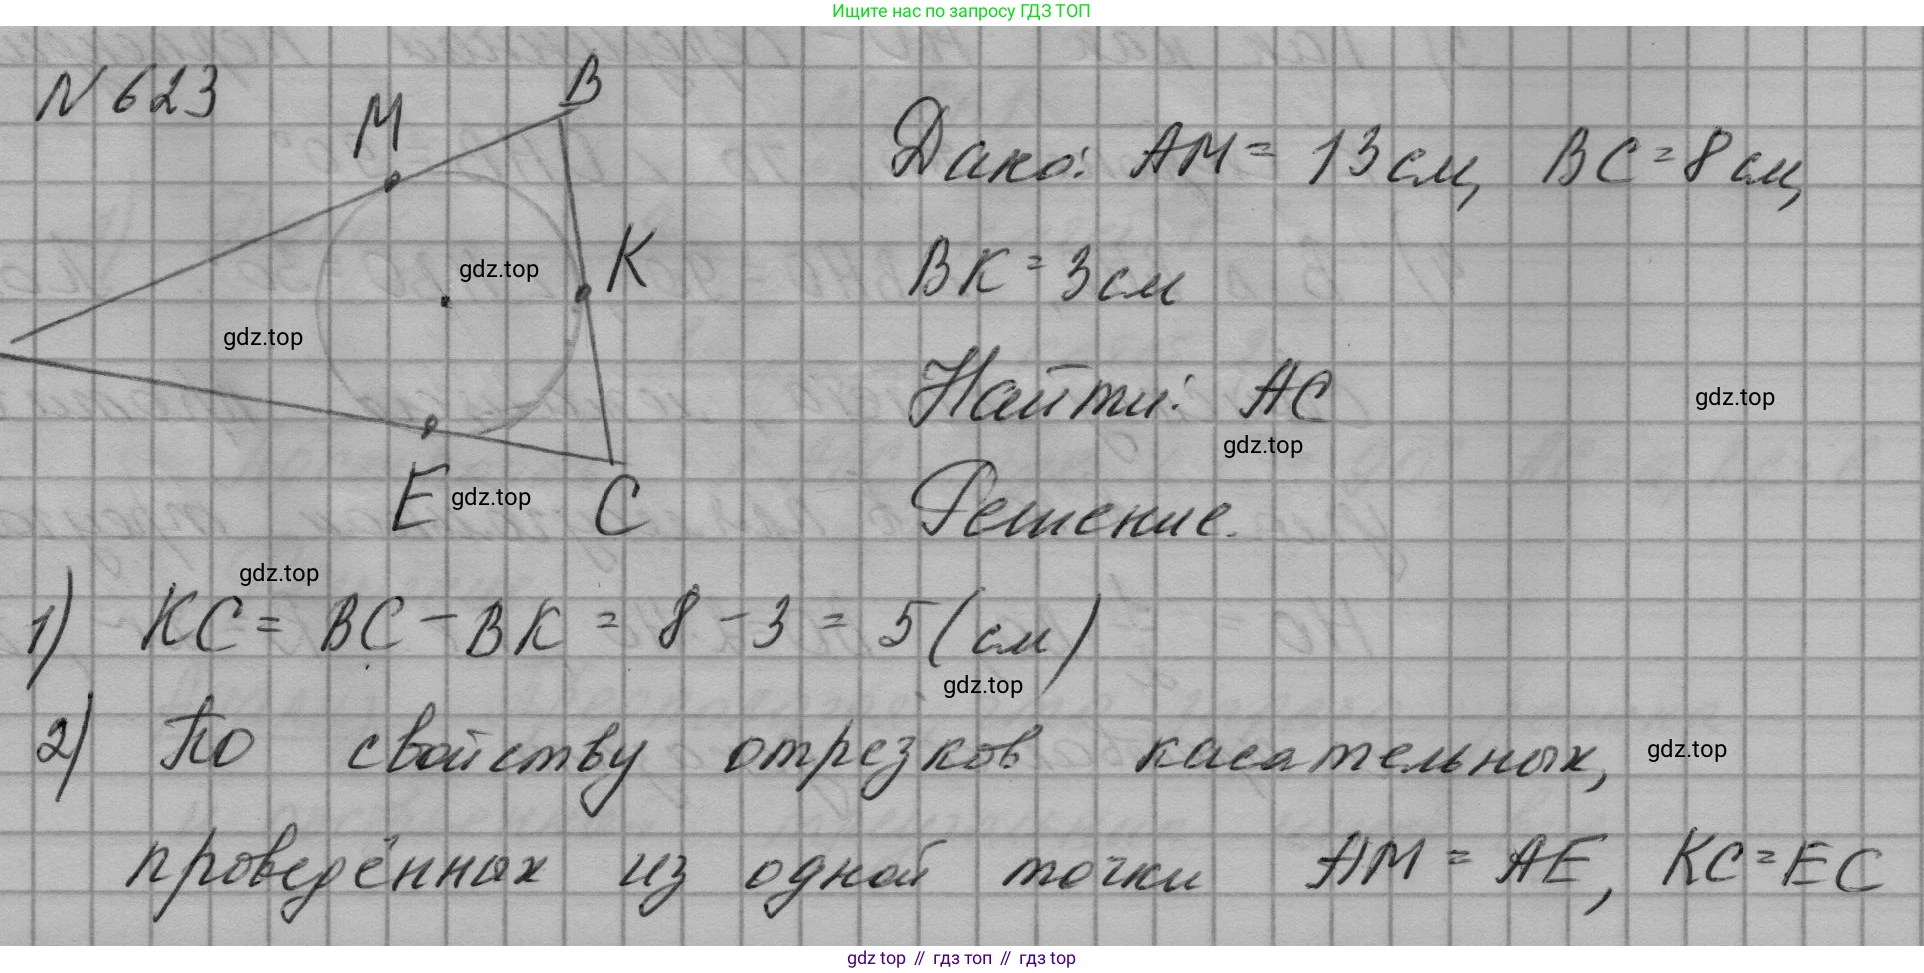 Ищите нас по запросу ГДЗ ТОП
N 623
M
B
K
E
C
Дано: AM = 13 см, BC = 8 см,
BK = 3 см
Найти: AC
Решение.
1) KC = BC - BK = 8 - 3 = 5 (см)
2) По свойству отрезков касательных,
проведённых из одной точки AM = AE, KC = EC
gdz.top
gdz.top
gdz.top
gdz.top
gdz.top
gdz.top
gdz.top
gdz.top
gdz.top // гдз топ // гдз top